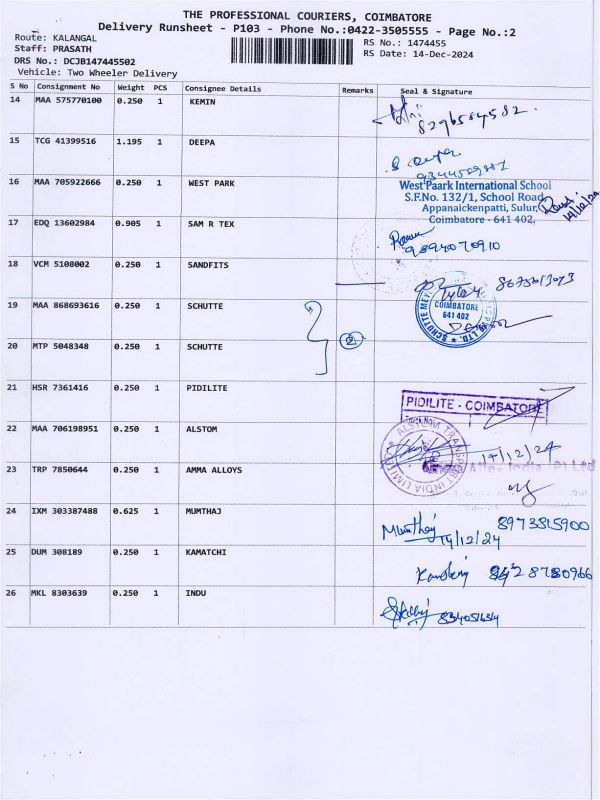 THE PROFESSIONAL COURIERS, COIMBATORE
Delivery Runsheet - P103 - Phone No.:0422-3505555 - Page No.:2
Route: KALANGAL
Staff: PRASATH
DRS No.: DCJB147445502
Vehicle: Two Wheeler Delivery
RS No.: 1474455
RS Date: 14-Dec-2024
S No Consignment No Weight PCS Consignee Details Remarks Seal & Signature
14 MAA 575770100 0.250 1 KEMIN
8296584582
15 TCG 41399516 1.195 1 DEEPA
16 MAA 705922666 0.250 1 WEST PARK
West Paark International School
S.F.No. 132/1, School Road,
Appanaickenpatti, Sulur,
Coimbatore - 641 402.
14/12/24
17 EDQ 13602984 0.905 1 SAM R TEX
9894070910
18 VCM 5108002 0.250 1 SANDFITS
19 MAA 868693616 0.250 1 SCHUTTE
COIMBATORE
641 402
20 MTP 5048348 0.250 1 SCHUTTE
2
21 HSR 7361416 0.250 1 PIDILITE
PIDILITE - COIMBATORE
22 MAA 706198951 0.250 1 ALSTOM
14/12/24
23 TRP 7850644 0.250 1 AMMA ALLOYS
24 IXM 303387488 0.625 1 MUMTHAJ
Mumthaj 8973815900
14/12/24
25 DUM 308189 0.250 1 KAMATCHI
26 MKL 8303639 0.250 1 INDU